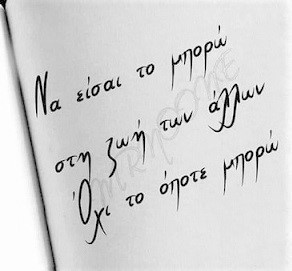 Να είσαι το μπορώ
στη ζωή των άλλων
Όχι το όποτε μπορώ